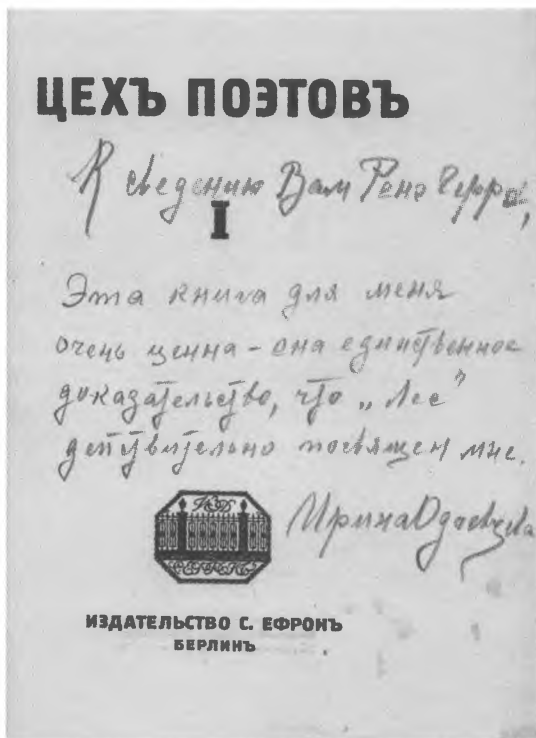 ЦЕХЪ ПОЭТОВЪ
К сведению Вам Рене Герра,
I
Эта книга для меня
очень ценна – она единственное
доказательство, что „Лес"
действительно посвящен мне.
Ирина Одоевцева
ИЗДАТЕЛЬСТВО С. ЕФРОНЪ
БЕРЛИНЪ